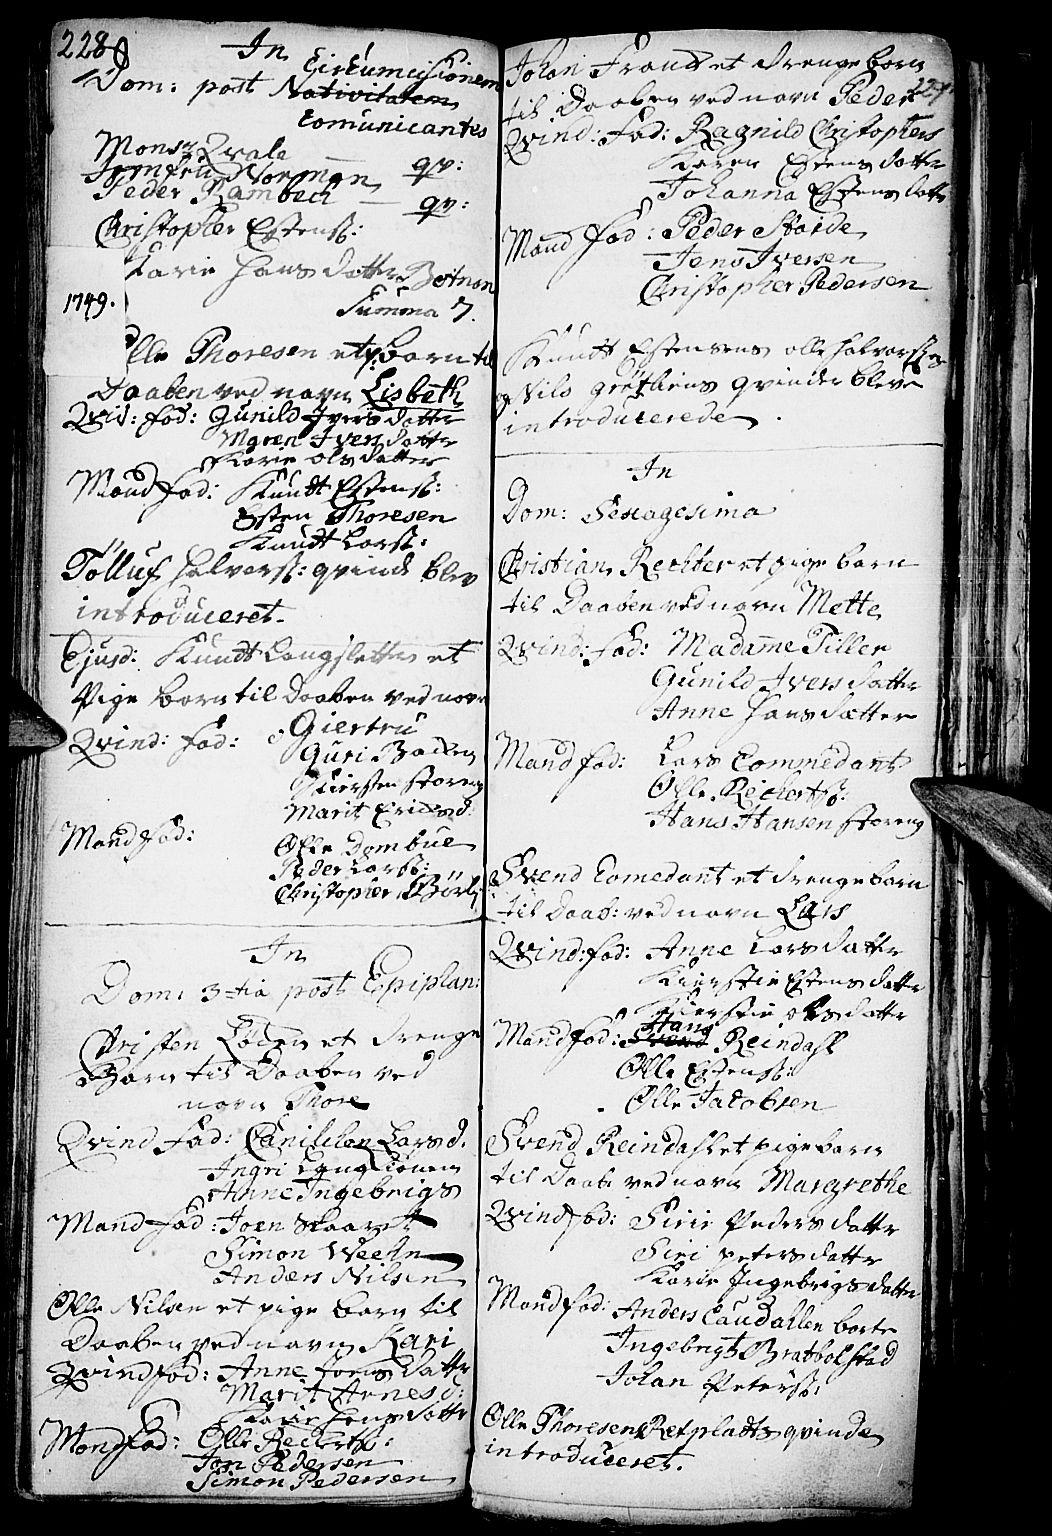 228
In
Dom: post Nativitatem Circumcisionem
Comunicantes
Monsr Qvale
Jomfru Norman — qv:
Peder Rambech — qv:
Christopher Estens:
Karie Hans datter Botnen
Summa 7.
1749.
Olle Thoresen et p: barn til
Daaben ved navn Lisbeth
Qvi: fad: Gunild Ivers datter
Maren Ivers datter
Karie Ols datter
Mand fad: Knudt Estens:
Esten Thoresen
Knudt Lars:
Tölluf Halvors: qvinde blev
introduceret.
Ejusd: Knudt Langslette et
Pige barn til Daaben ved navn
Giertru
Qvind: fad: Guri Backen
Kiersten Storeng
Marit Erics d:
Mand fad: Olle Dombue
Peder Lars:
Christopher Börli
In
Dom: 3tia post Epiphan:
Christen Löden et drenge
Barn til Daaben ved
navn Thore
Qvind fad: Lars d.
Ingri
Anne Ingebrigs
Mand fad: Joen Skaaret
Simon
Anders Nilsen
Olle Nilsen et pige barn til
Daaben ved navn Kari
Qvind fad: Anne Jons datter
Marit Arnes d:
Karie datter
Mand fad: Olle Reckerts:
Jon Pedersen
Simon Pedersen
Johan Frandt et drenge barn
229
til Daaben ved navn Peder
Qvind: fad: Ragnild Christophers
Karen Estens datter
Johanna Estens datter
Mand fad: Peder Stoide
Jens Iversen
Christopher Pedersen
Knudt Estensens Olle Halvorsens
og Nils Grethens qvinder bleve
introducerede.
In
Dom: Sexagesima
Christian Rechter et pige barn
til Daaben ved navn Mette
Qvind: fad: Madame Tiller
Gunild Ivers datter
Anne Hans datter
Mand fad: Lars Commedant
Olle Reckerts:
Hans Hansen Storeng
Svend Comedant et drenge barn
til Daab: ved navn Lars
Qvind: fad: Anne Lars datter
Kierstie Estens datter
Kierstie Ols datter
Mand fad: Svend Hans Reindahl
Olle Estens:
Olle Jacobsen
Svend Reindahl et pige barn
til Daab: ved navn Margrethe
Qvind fad: Sirie Peders datter
Siri Peters datter
Karie Ingebrigs datter
Mand fad: Anders
Ingebrigt Bratbolstad
Johan Peters:
Olle Thoresens Retplads qvinde
introduceret.